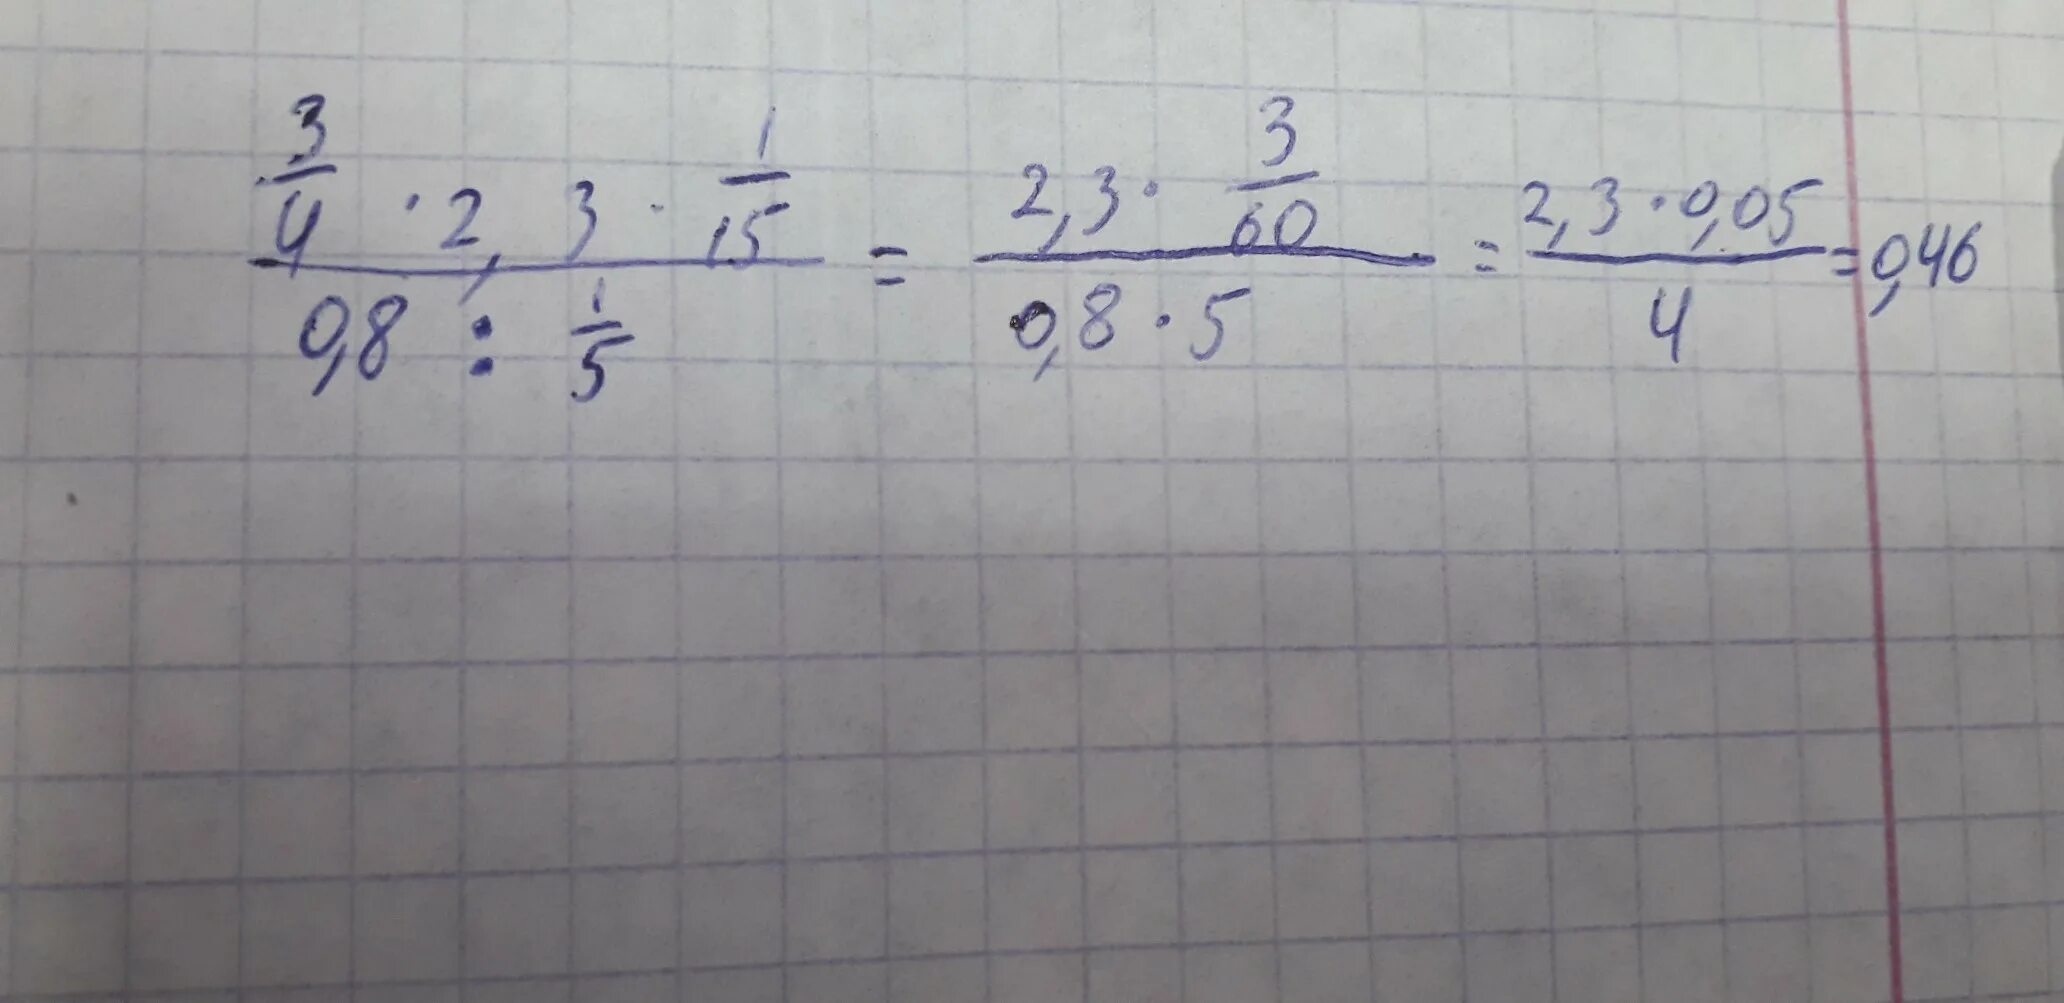 3/4 · 2,3 · 1/15 / 0,8 : 1/5 = 2,3 · 3/60 / 0,8 · 5 = 2,3 · 0,05 / 4 = 0,46